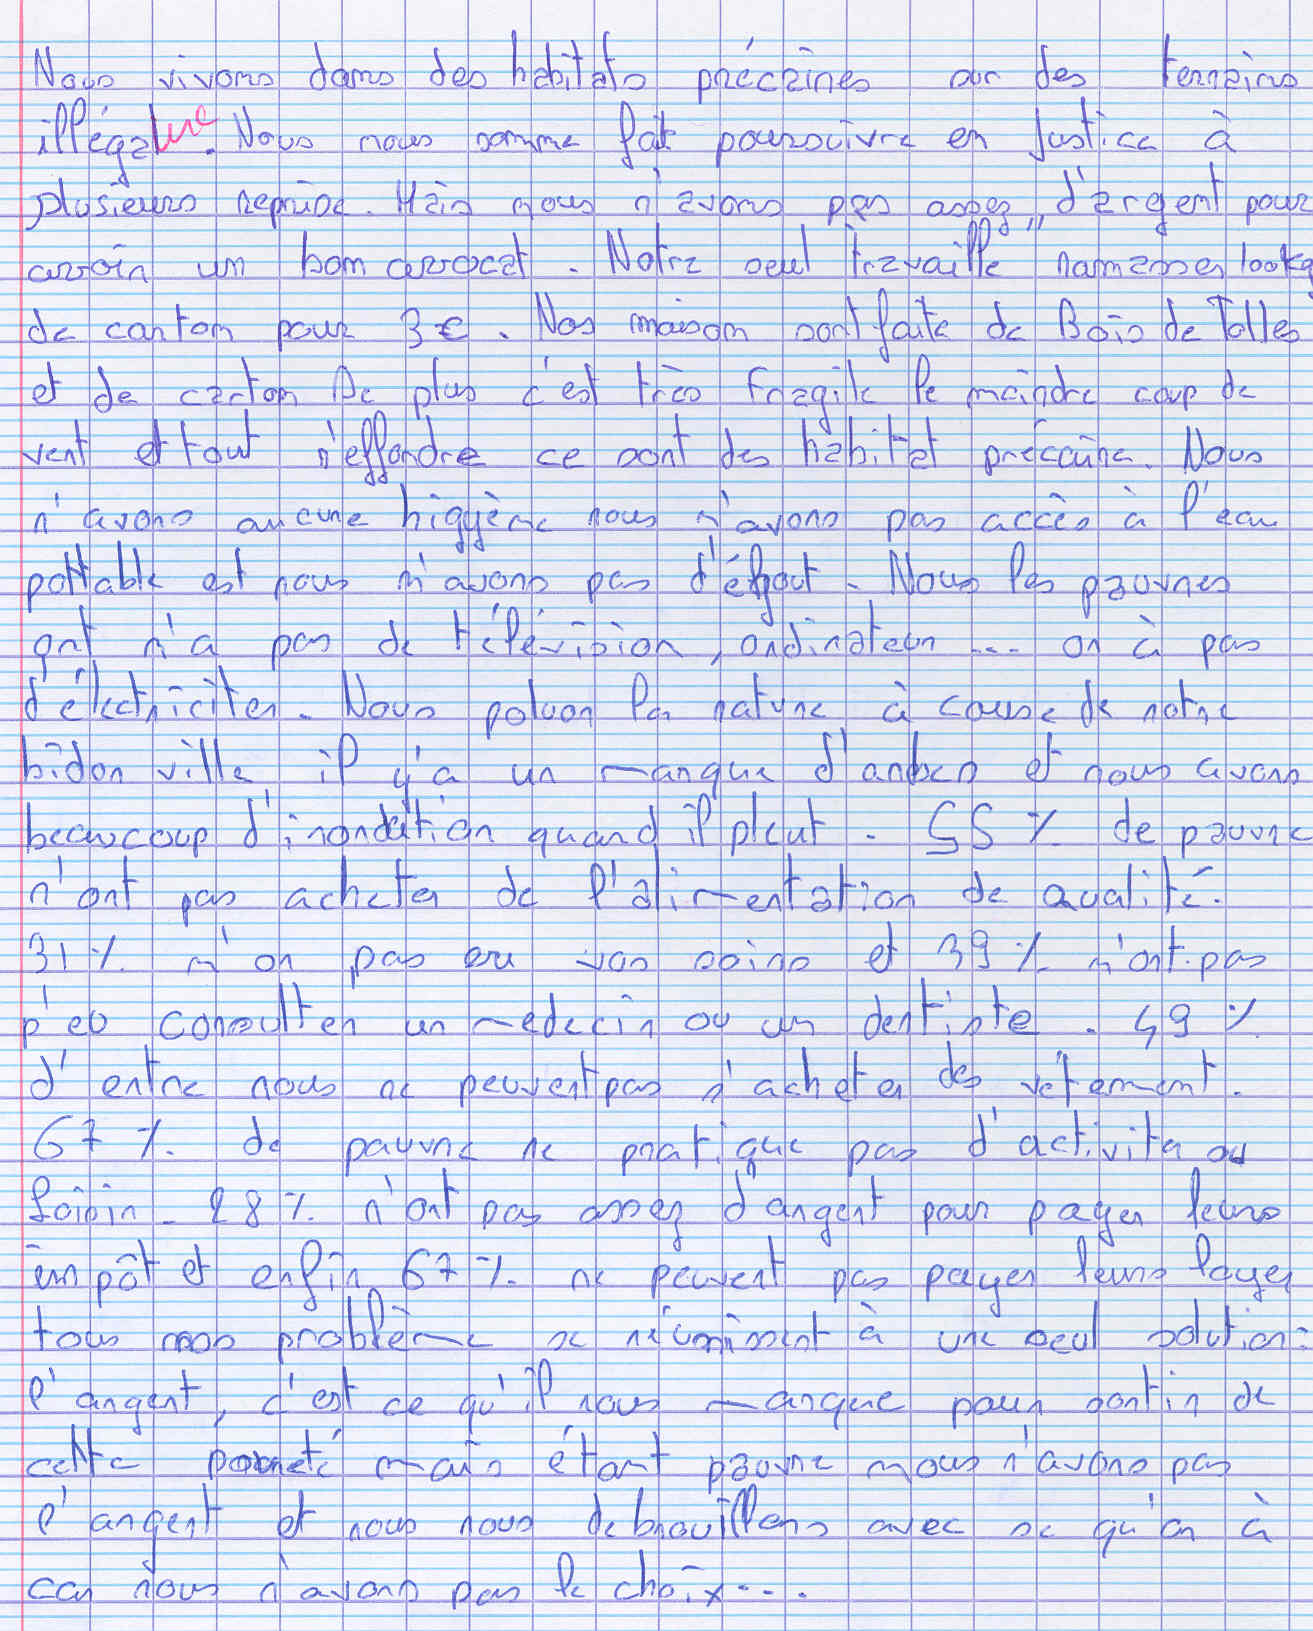 Nous vivons dans des habitats précaires sur des terrains
illégaux. Nous nous somme fait poursuivre en Justice à
plusieurs reprise. Mais nous n'avons pas assez d'argent pour
avoir un bon avocat. Notre seul travaille ramasser 100kg
de carton pour 3€. Nos maison sont faite de Bois de Tolles
et de carton De plus c'est très Fragile le moindre coup de
vent et tout s'effondre ce sont des habitat précaire. Nous
n'avons aucune higyène nous n'avons pas accès à l'eau
pottable est nous n'avons pas d'égout. Nous les pauvres
ont n'a pas de télévision, ordinateur ... on à pas
d'électriciter. Nous poluon la nature à cause de notre
bidon ville il y'a un manque d'arbes et nous avons
beaucoup d'inondation quand il pleut. 55 % de pauvre
n'ont pas acheter de l'alimentation de qualité.
31 % n'on pas eu vos soins et 39 % n'ont pas
p'eu consulter un medecin ou un dentiste. 49 %
d'entre nous ne peuvent pas s'acheter des vêtement.
67 %. de pauvre ne pratique pas d'activita ou
loisir. 28 %. n'ont pas assez d'argent pour payer leurs
impôt et enfin 67 %. ne peuvent pas payer leurs loyer
tous nos problème se réunissent à une seul solution:
l'argent, c'est ce qu'il nous manque pour sortir de
cette pauveté mais étant pauvre nous n'avons pas
l'argent et nous nous debrouillons avec se qu'on à
car nous n'avons pas le choix....